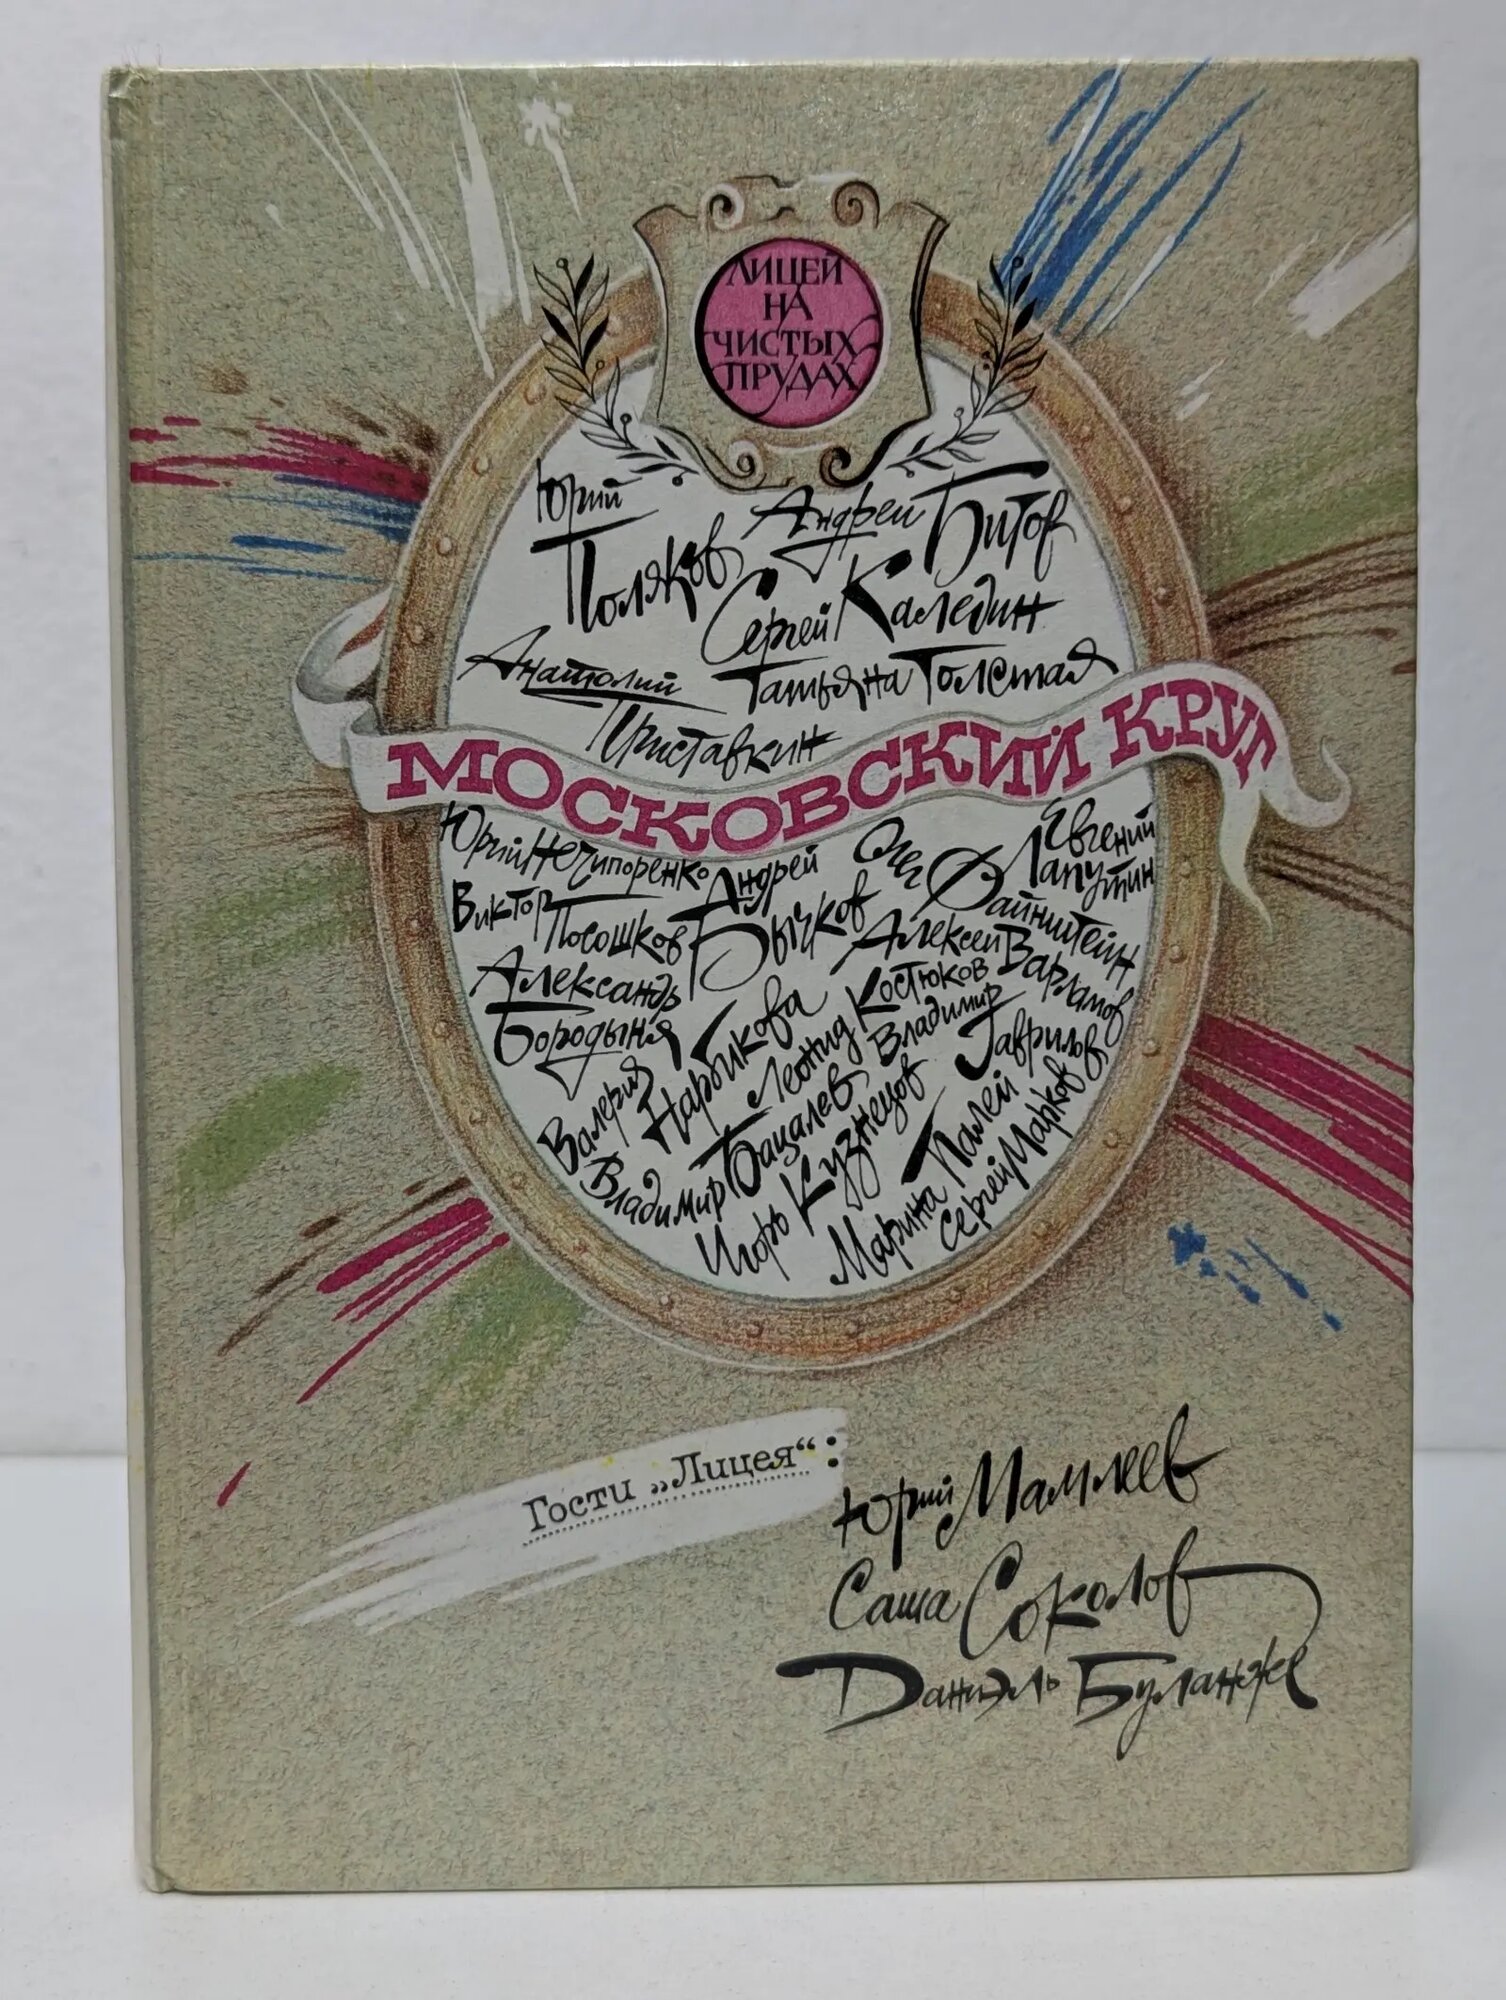 ЛИЦЕЙ
НА
ЧИСТЫХ
ПРУДАХ
Юрий
Поляков
Андрей Битов
Сергей Каледин
Анатолий
Приставкин
Татьяна Толстая
МОСКОВСКИЙ КРУГ
Юрий Нечипоренко
Виктор Посошков
Андрей
Бычков
Олег Файнштейн
Евгений
Лапутин
Александр
Бородыня
Алексей Варламов
Валерия
Нарбикова
Леонид Костюков
Владимир
Гаврилов
Владимир Бацалев
Игорь Кузнецов
Марина Палей
Сергей Марков
Гости „Лицея“:
Юрий Мамлеев
Саша Соколов
Даниэль Буланже